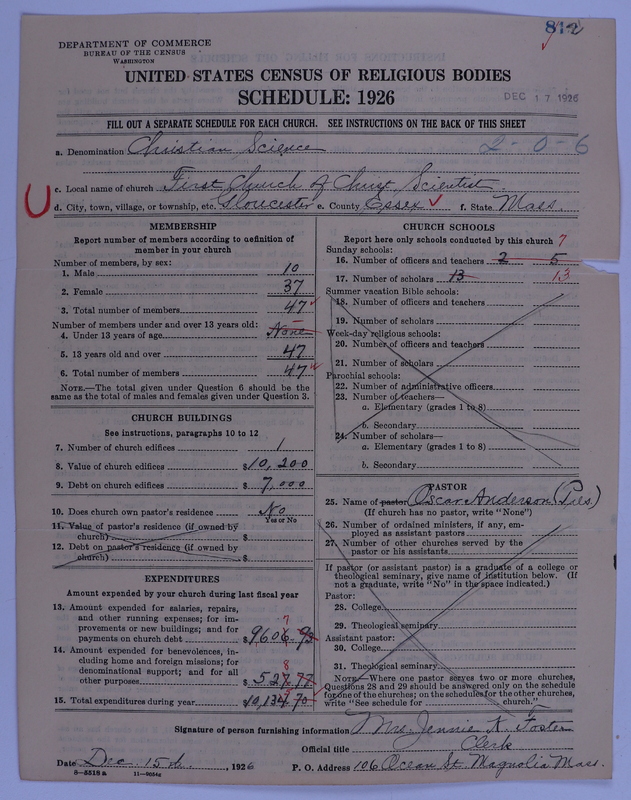 812
DEPARTMENT OF COMMERCE
BUREAU OF THE CENSUS
WASHINGTON
UNITED STATES CENSUS OF RELIGIOUS BODIES
SCHEDULE: 1926
DEC 17 1926
FILL OUT A SEPARATE SCHEDULE FOR EACH CHURCH. SEE INSTRUCTIONS ON THE BACK OF THIS SHEET
a. Denomination Christian Science 2-0-6
c. Local name of church First Church of Christ Scientist
d. City, town, village, or township, etc. Gloucester e. County Essex f. State Mass.
MEMBERSHIP
Report number of members according to definition of
member in your church
Number of members, by sex:
1. Male 10
2. Female 37
3. Total number of members 47
Number of members under and over 13 years old:
4. Under 13 years of age None
5. 13 years old and over 47
6. Total number of members 47
NOTE.—The total given under Question 6 should be the
same as the total of males and females given under Question 3.
CHURCH BUILDINGS
See instructions, paragraphs 10 to 12
7. Number of church edifices 1
8. Value of church edifices $10,200
9. Debt on church edifices $7,000
10. Does church own pastor's residence No
Yes or No
11. Value of pastor's residence (if owned by
church) $
12. Debt on pastor's residence (if owned by
church) $
EXPENDITURES
Amount expended by your church during last fiscal year
13. Amount expended for salaries, repairs,
and other running expenses; for im-
provements or new buildings; and for 7
payments on church debt $9606.93
14. Amount expended for benevolences, in-
cluding home and foreign missions; for
denominational support; and for all 8
other purposes $527.77
15. Total expenditures during year $10,134.70
CHURCH SCHOOLS
Report here only schools conducted by this church 7
Sunday schools:
16. Number of officers and teachers 2 5
17. Number of scholars 13 13
Summer vacation Bible schools:
18. Number of officers and teachers
19. Number of scholars
Week-day religious schools:
20. Number of officers and teachers
21. Number of scholars
Parochial schools:
22. Number of administrative officers
23. Number of teachers—
a. Elementary (grades 1 to 8)
b. Secondary
24. Number of scholars—
a. Elementary (grades 1 to 8)
b. Secondary
PASTOR
25. Name of pastor Oscar Anderson (Pres)
(If church has no pastor, write "None")
26. Number of ordained ministers, if any, em-
ployed as assistant pastors
27. Number of other churches served by the
pastor or his assistants
If pastor (or assistant pastor) is a graduate of a college or
theological seminary, give name of institution below. (If
not a graduate, write "No" in the space indicated.)
Pastor:
28. College
29. Theological seminary
Assistant pastor:
30. College
31. Theological seminary
NOTE.—Where one pastor serves two or more churches,
Questions 28 and 29 should be answered only on the schedule
for one of the churches; on the schedules for the other churches,
write "See schedule for church."
Signature of person furnishing information Mrs. Jennie K. Foster
Official title Clerk
Date Dec. 15th, 1926 P. O. Address 106 Ocean St. Magnolia Mass.
8—5518 a 11—9054c